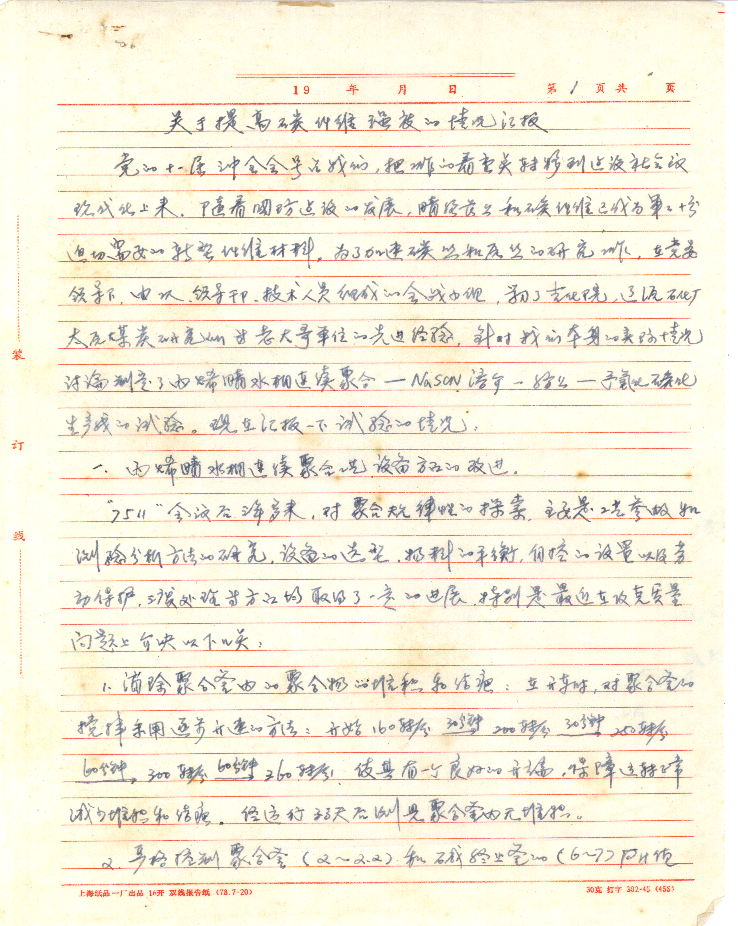 19 年 月 日 第 1 页共 页
关于提高碳纤维强度的情况汇报
党的十一届三中全会号召我们，把工作的着重点转移到建设社会主义
现代化上来，随着国防建设的发展，腈纶原丝和碳纤维已成为军工十分
迫切需要的新型纤维材料。为了加速碳丝和原丝的研究工作，在党委
领导下，由 领导干部、技术人员组成的会战小组，学习了吉化院，辽源石化厂
太原煤炭研究所等老大哥单位的先进经验，针对我们本身的实际情况
讨论制定了丙烯腈水相连续聚合—NaSCN溶解—纺丝—予氧化碳化
生产线的试验。现在汇报一下试验的情况：
一、丙烯腈水相连续聚合工艺、设备方面的改进。
"7511"会议后三年多来，对聚合规律性的探索，主要是工艺参数和
测验分析方法的研究，设备的选型，物料的平衡，自控的设置以及劳
动保护，三废处理等方面均取得了一定的进展，特别是最近在攻克质量
问题上解决以下几关：
1. 消除聚合釜内的聚合物的堆积和结疤：在开车时，对聚合釜的
搅拌采用逐步升速的方法：开始160转/分 30分钟 200转/分 30分钟 250转/分
60分钟 300转/分 60分钟 360转/分，使其有一个良好的开端，保障运转正常
减少堆积和结疤。经运行33天后测见聚合釜内无堆积。
2 严格控制聚合釜（2～2.2）和碱终止釜的（6～7）PH值
装
订
线
上海纸品一厂出品 16开 双线报告纸 (78.7-20)
30克 打字 302-45 (45S)